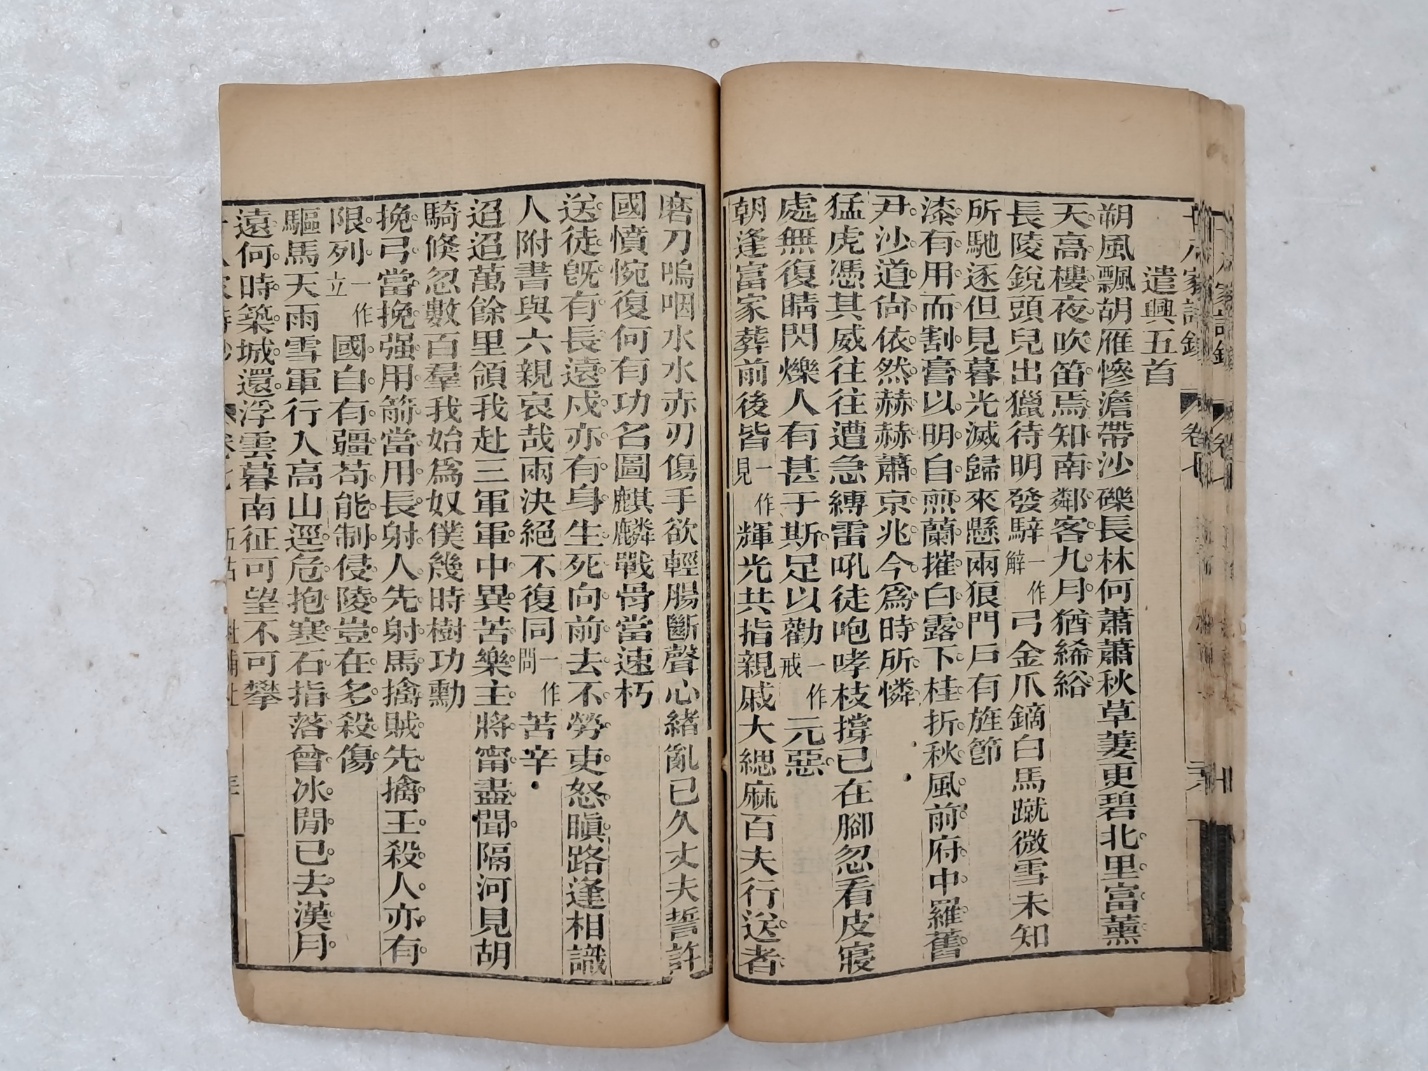 遣興五首
朔風飄胡雁慘澹帶沙礫長林何蕭蕭秋草萋更碧北里富薰
天高樓夜吹笛焉知南鄰客九月猶絺綌
長陵銳頭兒出獵待明發騂一作解弓金爪鏑白馬蹴微雪未知
所馳逐但見暮光滅歸來懸兩狼門戶有旌節
漆有用而割膏以明自煎蘭摧白露下桂折秋風前府中羅舊
尹沙道尚依然赫赫蕭京兆今爲時所憐
猛虎憑其威往往遭急縛雷吼徒咆哮枝撐已在腳忽看皮寢
處無復睛閃爍人有甚于斯足以勸一作戒元惡
朝逢富家葬前後皆一作見輝光共指親戚大緦麻百夫行送者
磨刀嗚咽水水赤刃傷手欲輕腸斷聲心緒亂已久丈夫誓許
國憤惋復何有功名圖麒麟戰骨當速朽
送徒旣有長遠戍亦有身生死向前去不勞吏怒瞋路逢相識
人附書與六親哀哉兩決絕不復同一作問苦辛
迢迢萬餘里領我赴三軍軍中異苦樂主將甯盡聞隔河見胡
騎倏忽數百羣我始爲奴僕幾時樹功勳
挽弓當挽强用箭當用長射人先射馬擒賊先擒王殺人亦有
限列一作立國自有疆苟能制侵陵豈在多殺傷
驅馬天雨雪軍行入高山逕危抱寒石指落曾冰閒已去漢月
遠何時築城還浮雲暮南征可望不可攀